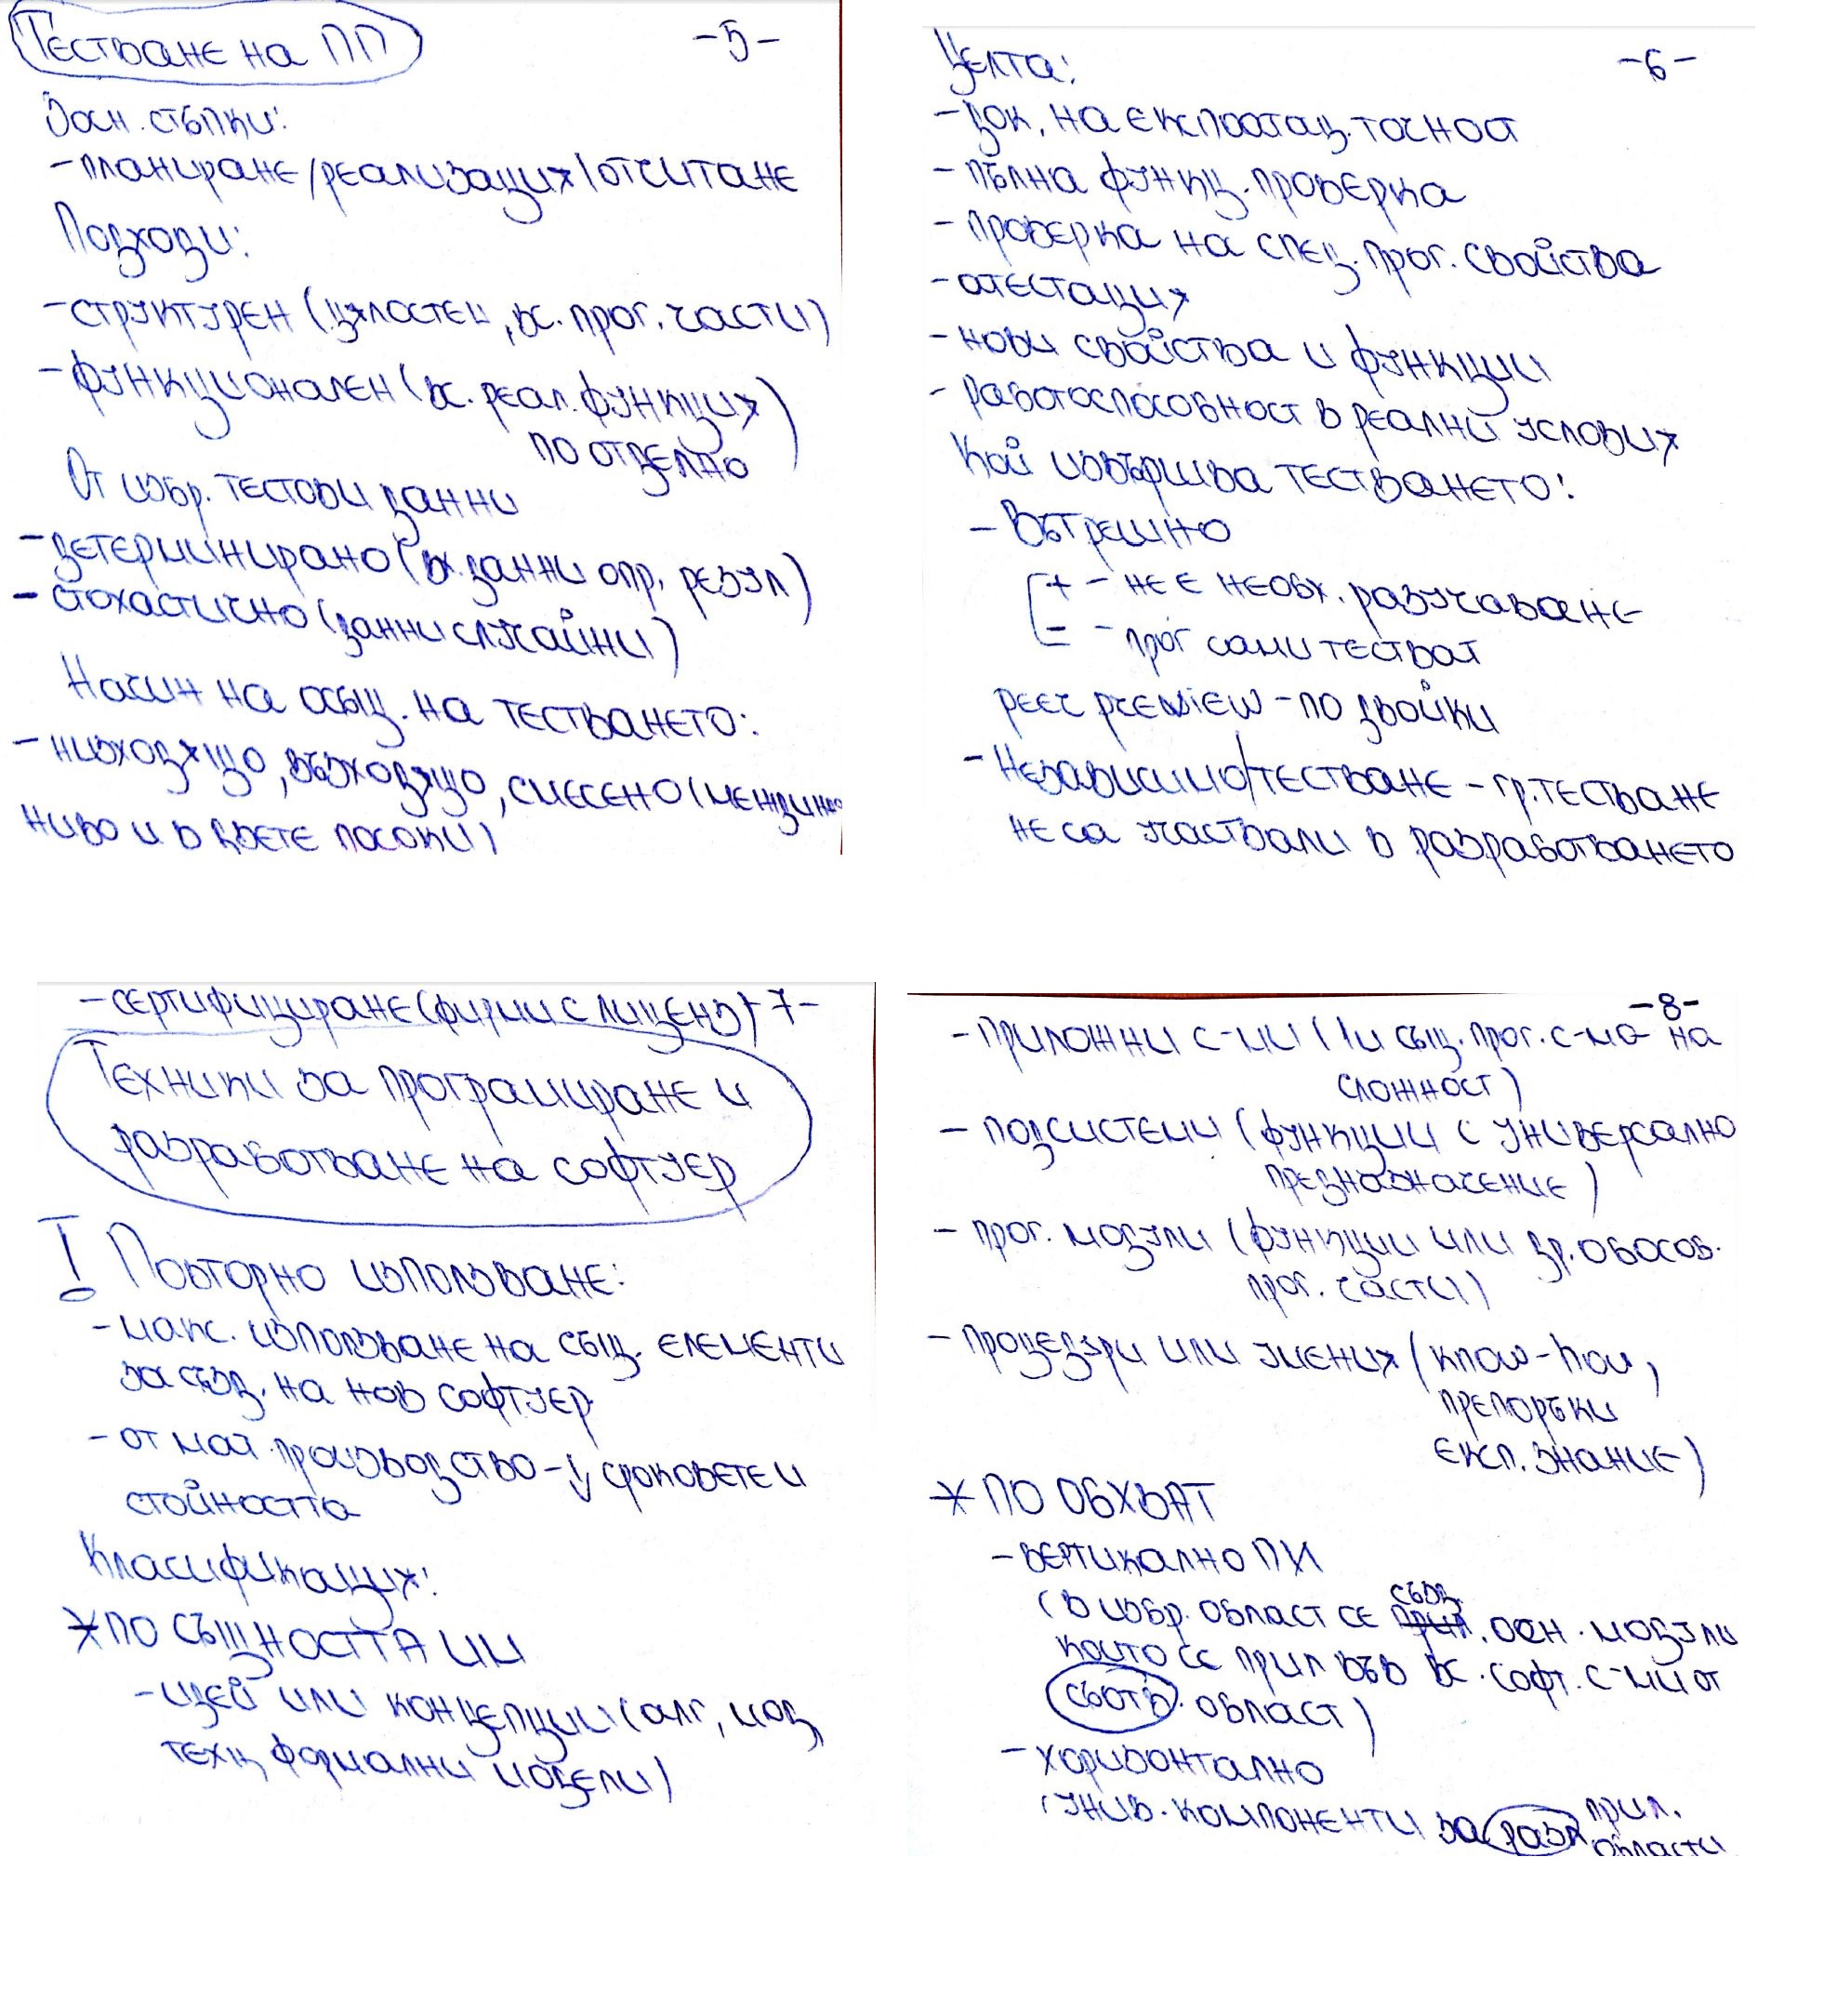 Тестване на ПП
-5-
3 осн. стъпки:
-планиране/реализация/отчитане
Подходи:
-структурен (цялостен, вс. прог. части)
-функционален (вс. реал. функция
по отделно)
От избр. тестови данни
-детерминирано (вх. данни опр. резул)
-стохастично (данни случайни)
Начин на осъщ. на тестването:
-низходящо, възходящо, смесено (междинно
ниво и в двете посоки)
-6-
Целта:
-док. на експлоатац. точност
-пълна функц. проверка
-проверка на спец. прог. свойства
-атестация
-нови свойства и функции
-работоспособност в реални условия
Кой извършва тестването:
-Вътрешно
+ - не е необх. разучаване
- - прог сами тестват
peer preview - по двойки
-Независимо/тестване - гр. тестване
не са участвали в разработването
-сертифициране (фирми с лиценз) -7-
Техники за програмиране и
разработване на софтуер
I Повторно използване:
-макс. използване на същ. елементи
за създ. на нов софтуер
-от мат. производство - ↓ сроковете и
стойността
Класификация:
*ПО СЪЩНОСТТА ИМ
-идей или концепции (алг, мод,
техн, формални модели)
-8-
-приложни с-ми (1 и същ. прог. с-ма на
сложност)
-подсистеми (функции с универсално
предназначение)
-прог. модули (функции или др. обособ.
прог. части)
-процедури или умения (know-how,
препоръки
експ. знание)
*ПО ОБХВАТ
-вертикално ПИ
(в избр. област се създ. осн. модули
които се прил във вс. софт. с-ми от
съотв. област)
-хоризонтално
(унив. компоненти за разл. прил.
области